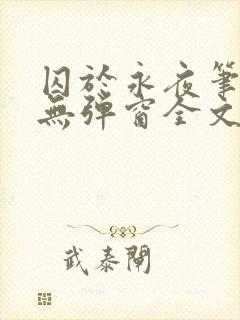 囚於永夜筆
無彈窗全文
武泰閘